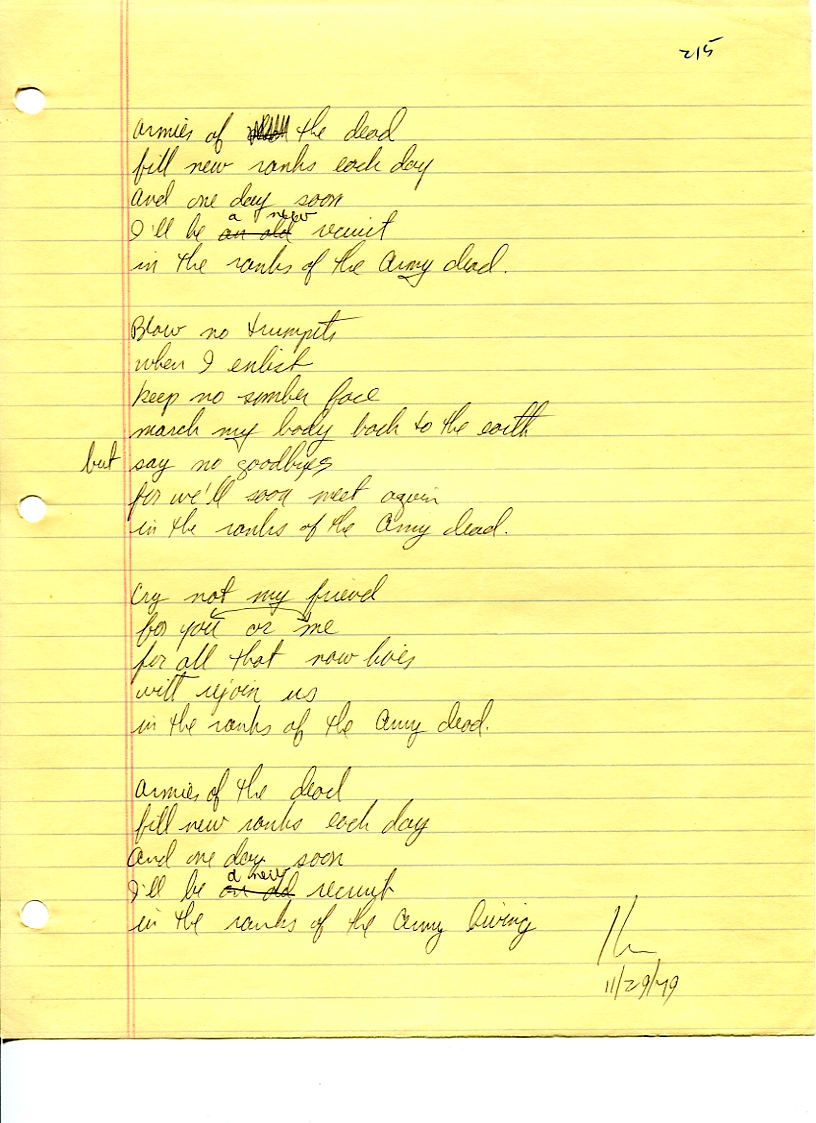 215
Armies of the dead
fill new ranks each day
And one day soon
I'll be an old a new recruit
in the ranks of the Army dead.
Blow no trumpets
when I enlist
keep no somber face
march my body back to the earth
but say no goodbyes
for we'll soon meet again
in the ranks of the Army dead.
Cry not my friend
for you or me
for all that now lives
will rejoin us
in the ranks of the Army dead.
Armies of the dead
fill new ranks each day
And one day soon
I'll be an old a new recruit
in the ranks of the Army living
11/29/79